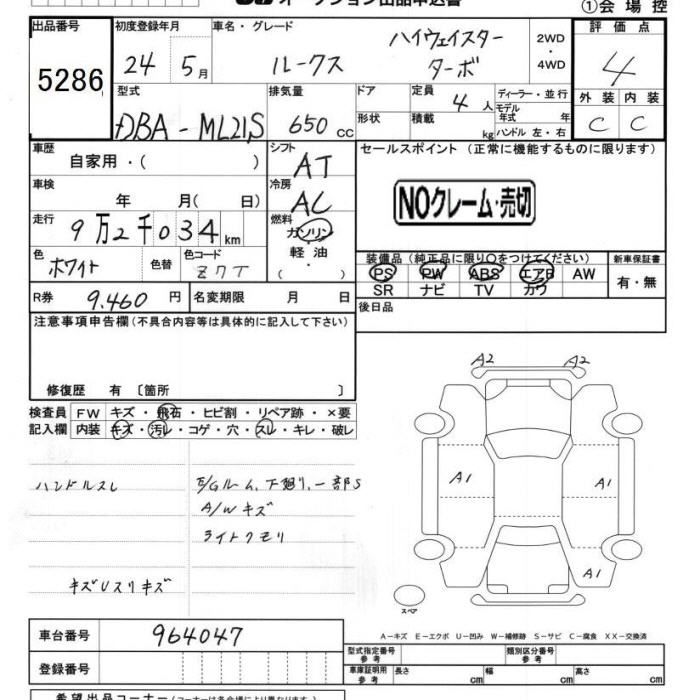 オークション出品申込書
①会場控
出品番号 初度登録年月 車名・グレード 評価点
5286
24年5月
ルークス ハイウェイスター
ターボ
2WD
・
4WD
4
型式 排気量 ドア 定員 4人 ディーラー・並行
DBA-ML21S 650cc
形状 積載 kg モデル年式 年
ハンドル 左・右
外装 内装
C C
車歴 シフト セールスポイント(正常に機能するものに限ります)
自家用・( ) AT
車検 冷房
年 月( 日) AC
NOクレーム・売切
走行 燃料
9万2千034km ガソリン
・
軽油
・
( )
色 色替 色コード
ホワイト Z7T
装備品(純正品に限り○をつけてください) 新車保証書
PS PW ABS エアB AW 有・無
SR ナビ TV カワ
R券 9,460円 名変期限 月 日
後日品
注意事項申告欄(不具合内容等は具体的に記入して下さい)
修復歴 有〔箇所 〕
検査員 FW キズ・飛石・ヒビ割・リペア跡・×要
記入欄 内装 キズ・汚レ・コゲ・穴・スレ・キレ・破レ
ハンドルスレ
E/Gルーム、下廻リ、一部S
A/Wキズ
ライトクモリ
キズUスリキズ
A2 A2
A1 A1
A1
スペア
A−キズ E−エクボ U−凹み W−補修跡 S−サビ C−腐食 XX−交換済
車台番号 964047
登録番号
型式指定番号 参考 類別区分番号 参考
車庫証明用 参考 長さ cm 幅 cm 高さ cm
希望出品コーナー